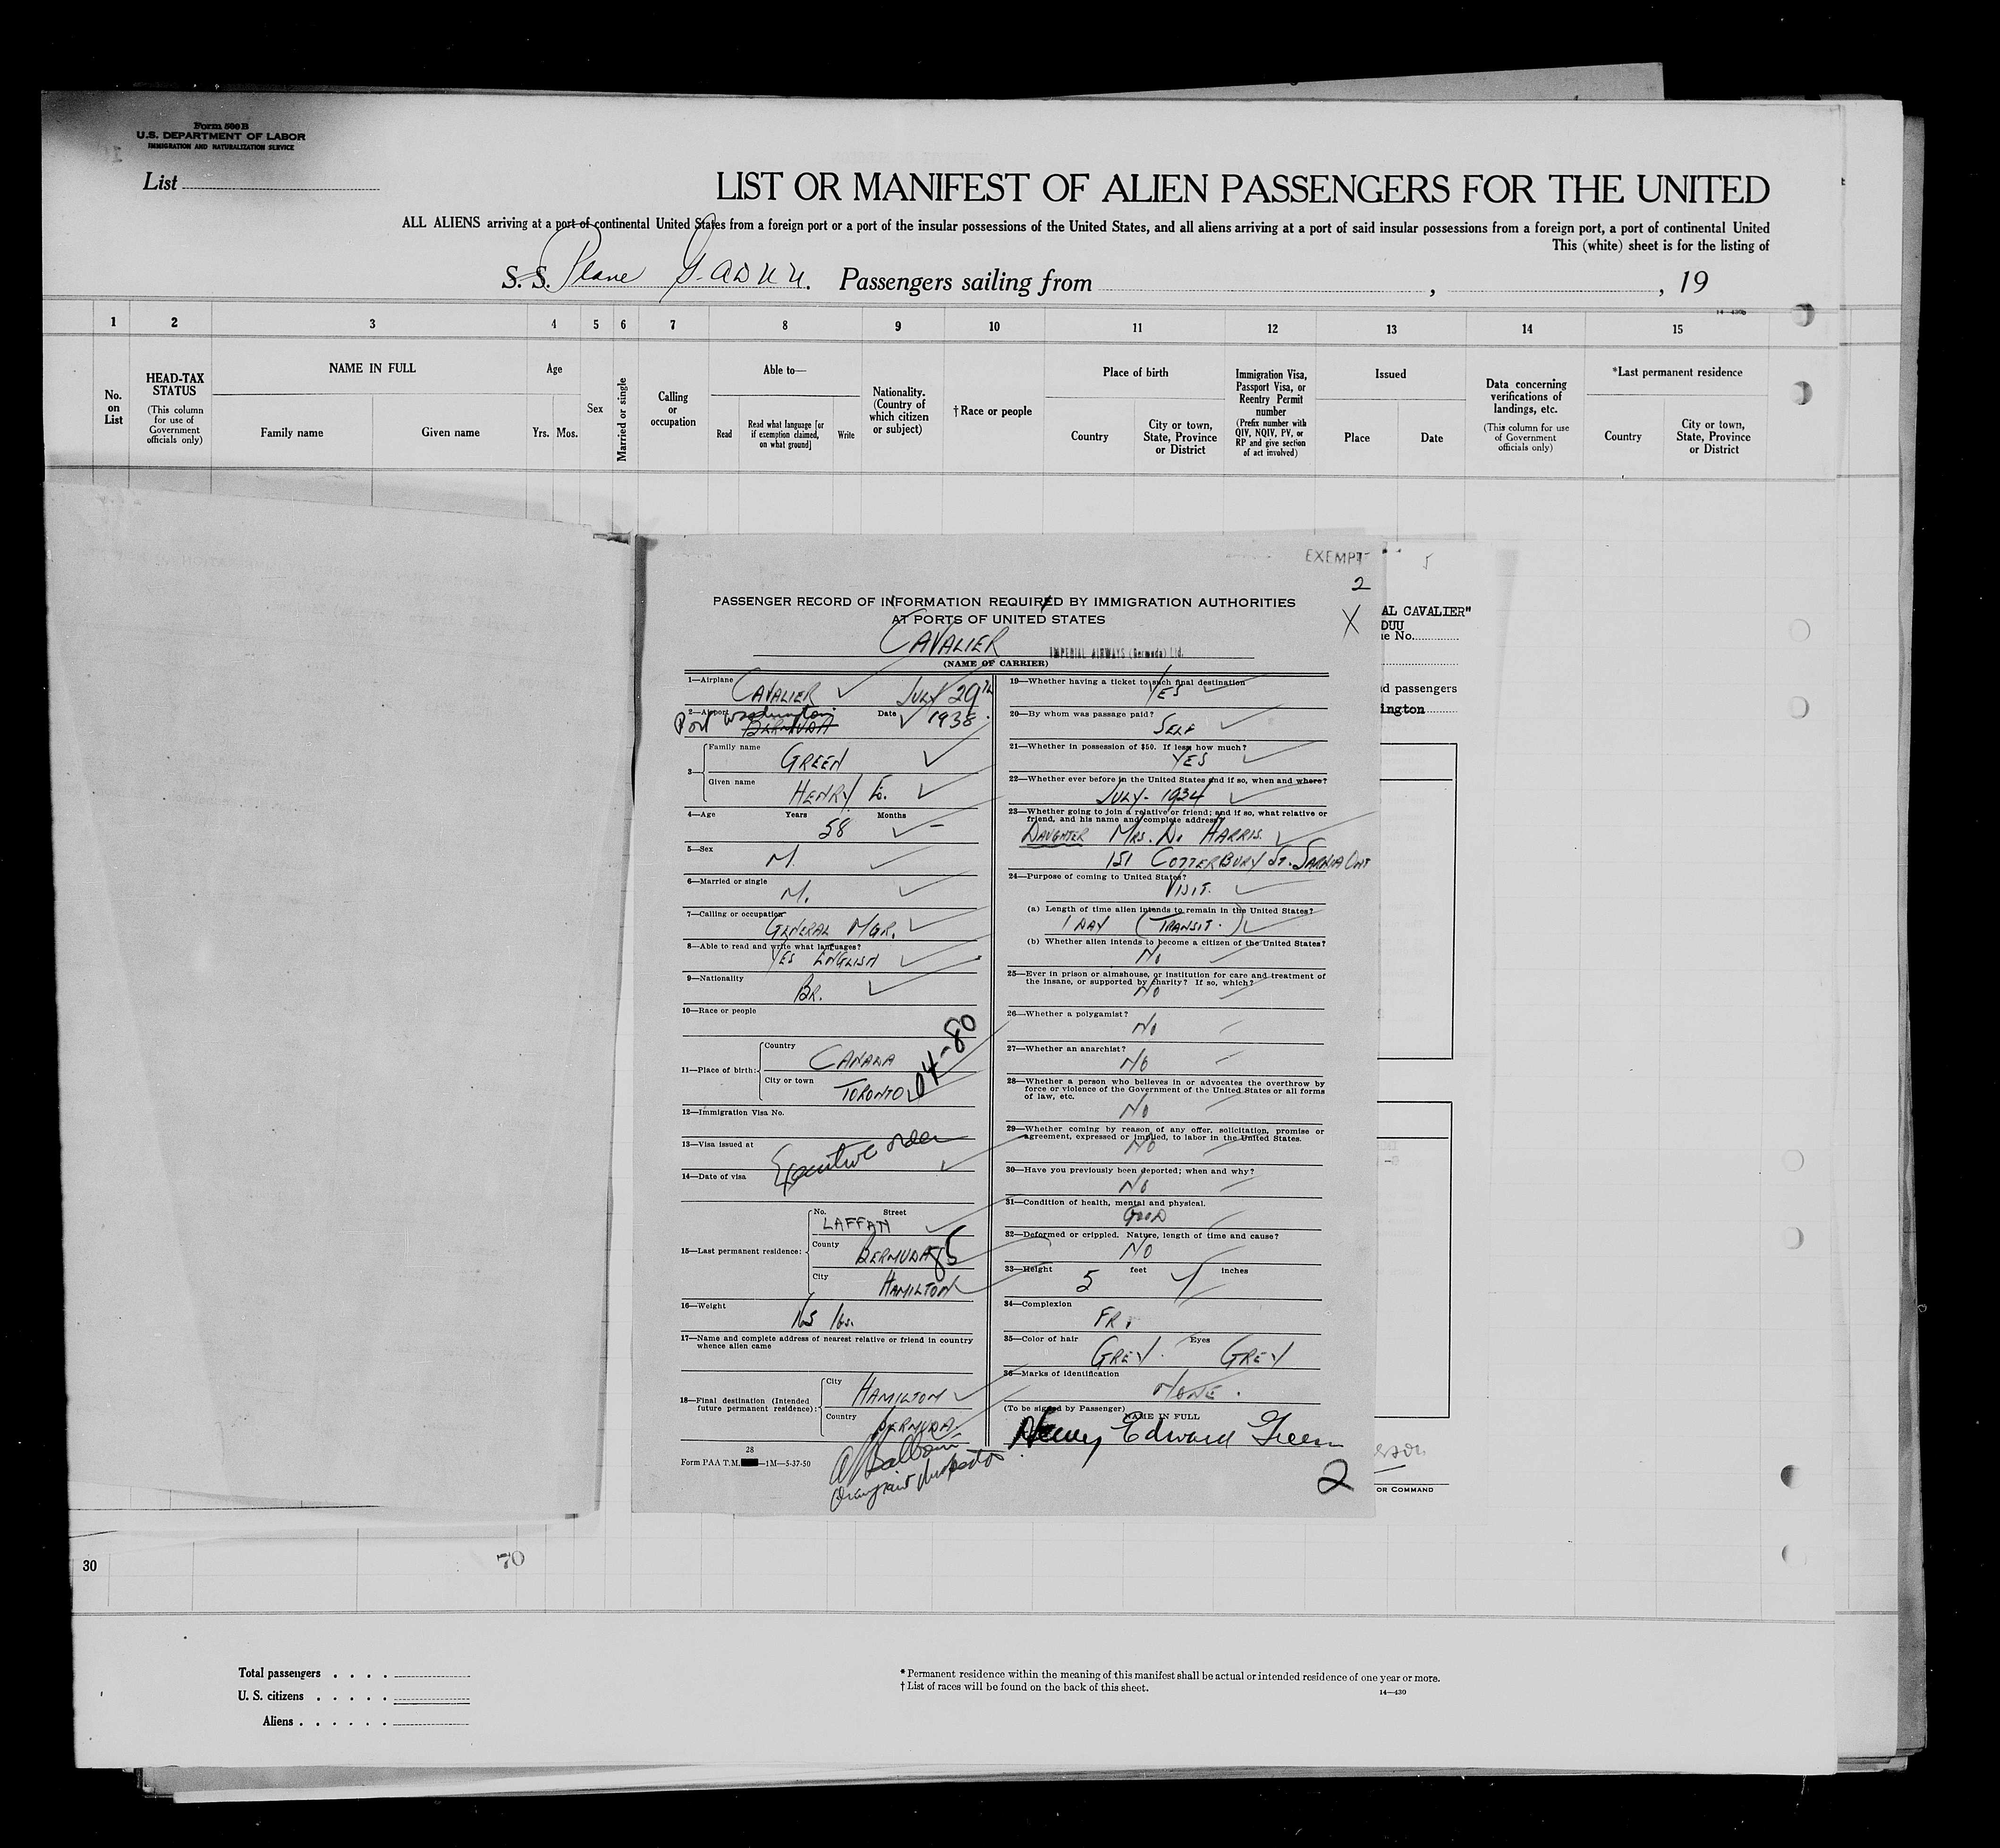 Form 500 B
U.S. DEPARTMENT OF LABOR
IMMIGRATION AND NATURALIZATION SERVICE
List
LIST OR MANIFEST OF ALIEN PASSENGERS FOR THE UNITED
ALL ALIENS arriving at a port of continental United States from a foreign port or a port of the insular possessions of the United States, and all aliens arriving at a port of said insular possessions from a foreign port, a port of continental United
This (white) sheet is for the listing of
S. S. Plane G-ADUU. Passengers sailing from , , 19
1 2 3 4 5 6 7 8 9 10 11 12 13 14 15
No. on List
HEAD-TAX STATUS
(This column for use of Government officials only)
NAME IN FULL
Family name Given name
Age
Yrs. Mos.
Sex
Married or single
Calling or occupation
Able to—
Read
Read what language [or if exemption claimed, on what ground]
Write
Nationality. (Country of which citizen or subject)
†Race or people
Place of birth
Country
City or town, State, Province or District
Immigration Visa, Passport Visa, or Reentry Permit number
(Prefix number with QIV, NQIV, PV, or RP and give section of act involved)
Issued
Place Date
Data concerning verifications of landings, etc.
(This column for use of Government officials only)
*Last permanent residence
Country
City or town, State, Province or District
EXEMPT
2
X
PASSENGER RECORD OF INFORMATION REQUIRED BY IMMIGRATION AUTHORITIES
AT PORTS OF UNITED STATES
CAVALIER
IMPERIAL AIRWAYS (Bermuda) Ltd.
(NAME OF CARRIER)
1—Airplane CAVALIER JULY 29th
2—Airport Port Washington BERMUDA Date 1938.
3— Family name GREEN
Given name HENRY E.
4—Age Years 58 Months –
5—Sex M.
6—Married or single M.
7—Calling or occupation GENERAL MGR.
8—Able to read and write what languages? YES ENGLISH
9—Nationality BR.
10—Race or people
11—Place of birth: Country CANADA
City or town TORONTO
04-80
12—Immigration Visa No.
13—Visa issued at
Executive order
14—Date of visa
15—Last permanent residence: No. Street LAFFAN
County BERMUDA 85
City HAMILTON
16—Weight 165 lbs.
17—Name and complete address of nearest relative or friend in country whence alien came
18—Final destination (Intended future permanent residence): City HAMILTON
Country BERMUDA
28
Form PAA T.M. —1M—5-37-50
19—Whether having a ticket to such final destination YES
20—By whom was passage paid? SELF
21—Whether in possession of $50. If less how much? YES
22—Whether ever before in the United States and if so, when and where?
JULY - 1934
23—Whether going to join a relative or friend; and if so, what relative or
friend, and his name and complete address?
DAUGHTER MRS. D. HARRIS.
151 COTTERBURY ST. SARNIA ONT
24—Purpose of coming to United States? VISIT.
(a) Length of time alien intends to remain in the United States?
1 DAY (TRANSIT.)
(b) Whether alien intends to become a citizen of the United States?
NO
25—Ever in prison or almshouse, or institution for care and treatment of
the insane, or supported by charity? If so, which?
NO
26—Whether a polygamist?
NO
27—Whether an anarchist?
NO
28—Whether a person who believes in or advocates the overthrow by
force or violence of the Government of the United States or all forms
of law, etc.
NO
29—Whether coming by reason of any offer, solicitation, promise or
agreement, expressed or implied, to labor in the United States.
NO
30—Have you previously been deported; when and why?
NO
31—Condition of health, mental and physical.
GOOD
32—Deformed or crippled. Nature, length of time and cause?
NO
33—Height 5 feet inches
34—Complexion FR.
35—Color of hair GREY. Eyes GREY
36—Marks of identification NONE.
(To be signed by Passenger) NAME IN FULL
Henry Edward Green
2
5
AL CAVALIER"
DUU
ie No.
d passengers
ington
OR COMMAND
30
70
Total passengers
U. S. citizens
Aliens
* Permanent residence within the meaning of this manifest shall be actual or intended residence of one year or more.
† List of races will be found on the back of this sheet.
14—430